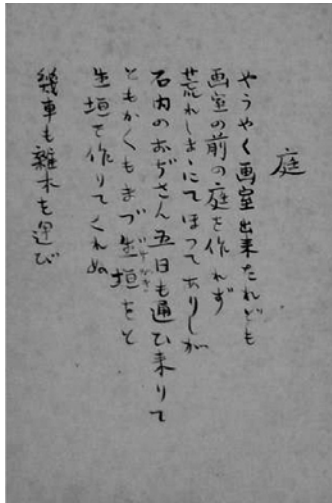 庭
やうやく画室出来たれども
画室の前の庭を作れず
荒れしまゝにてほつてありしが
石内のおぢさん五日も通ひ来りて
ともかくもまづ生垣をと
いけがき
生垣を作りてくれぬ
幾車も雑木を運び